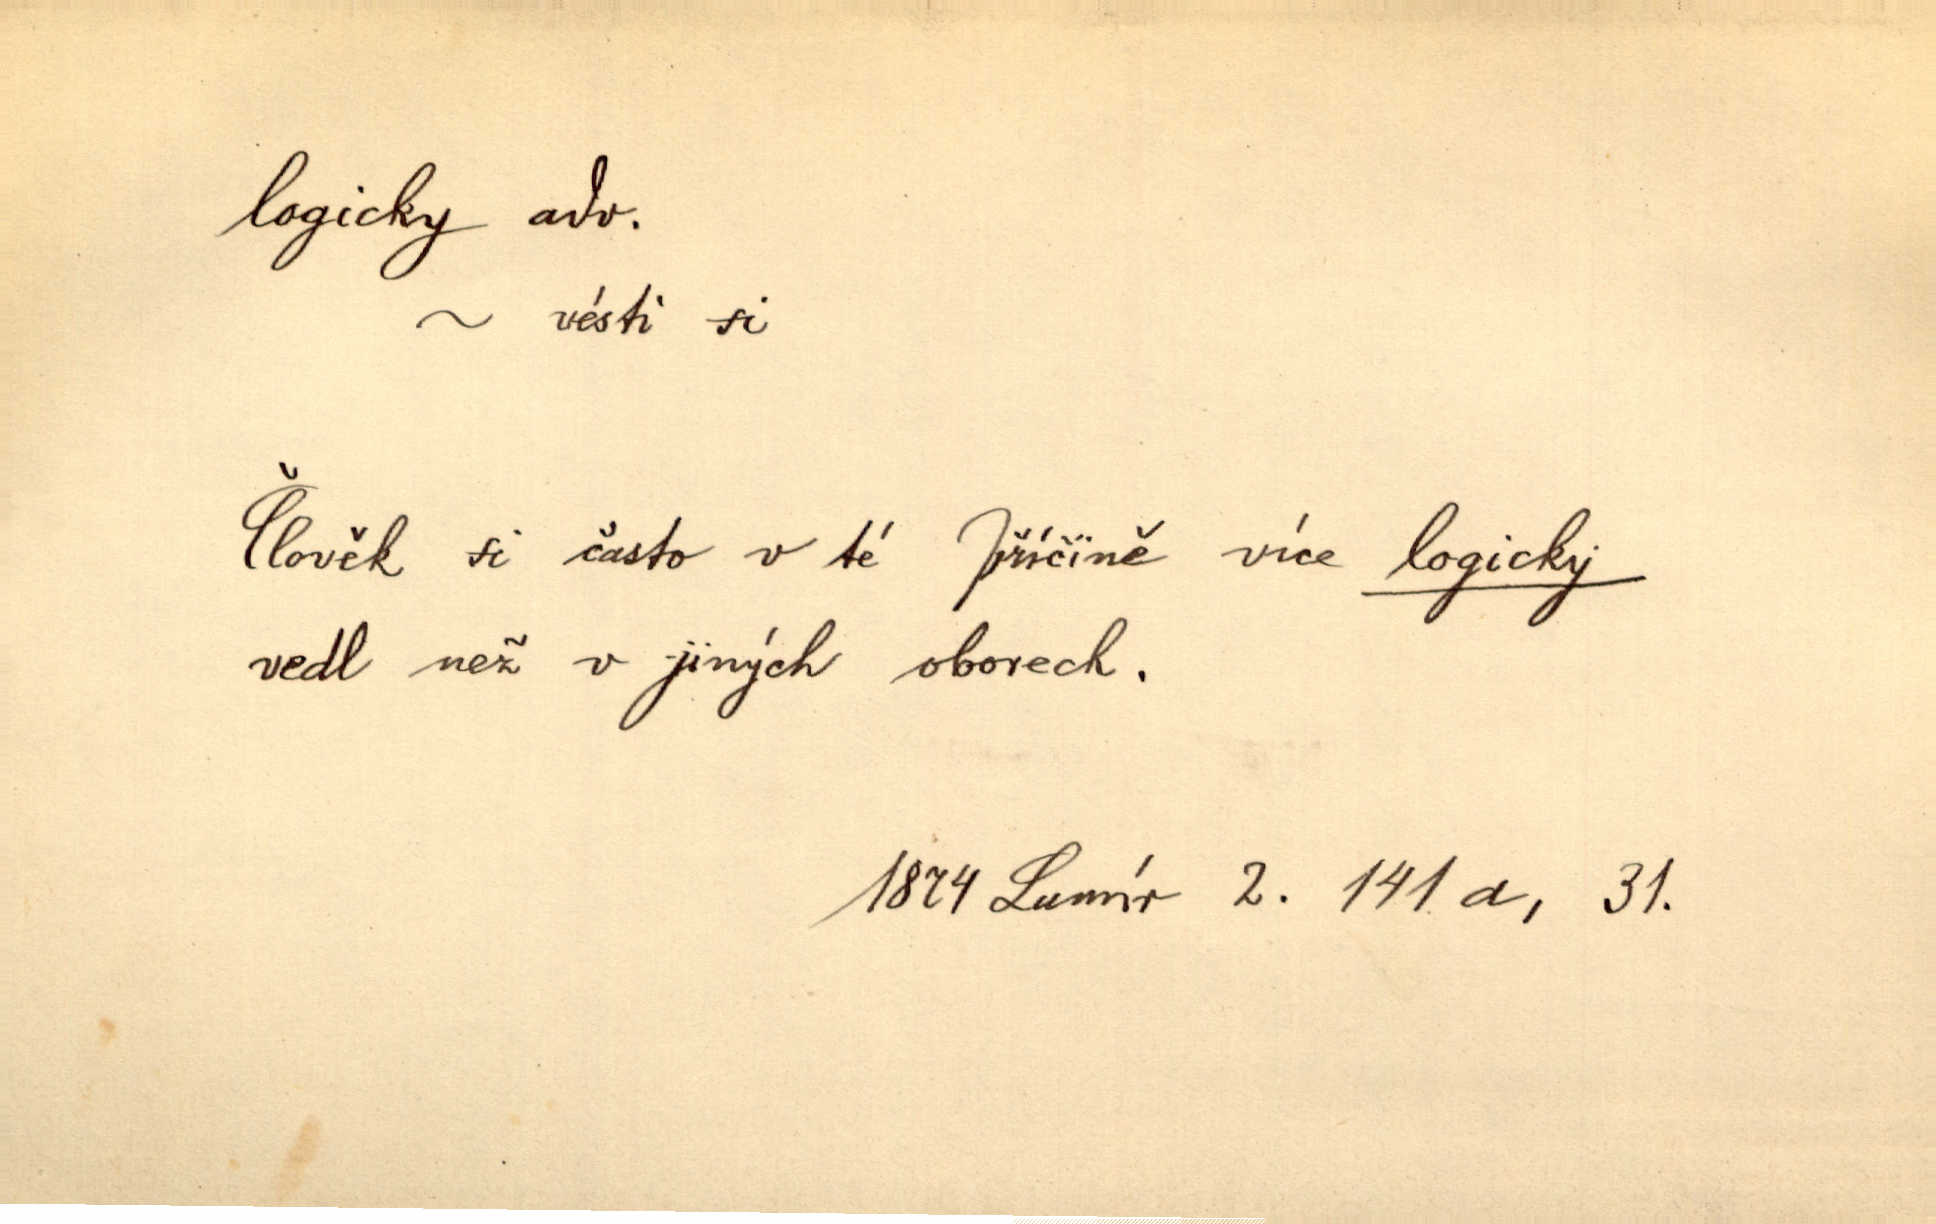 logicky adv.
~ vésti si
Člověk si často v té příčině více logicky
vedl než v jiných oborech.
1874 Lumír 2. 141 a, 31.